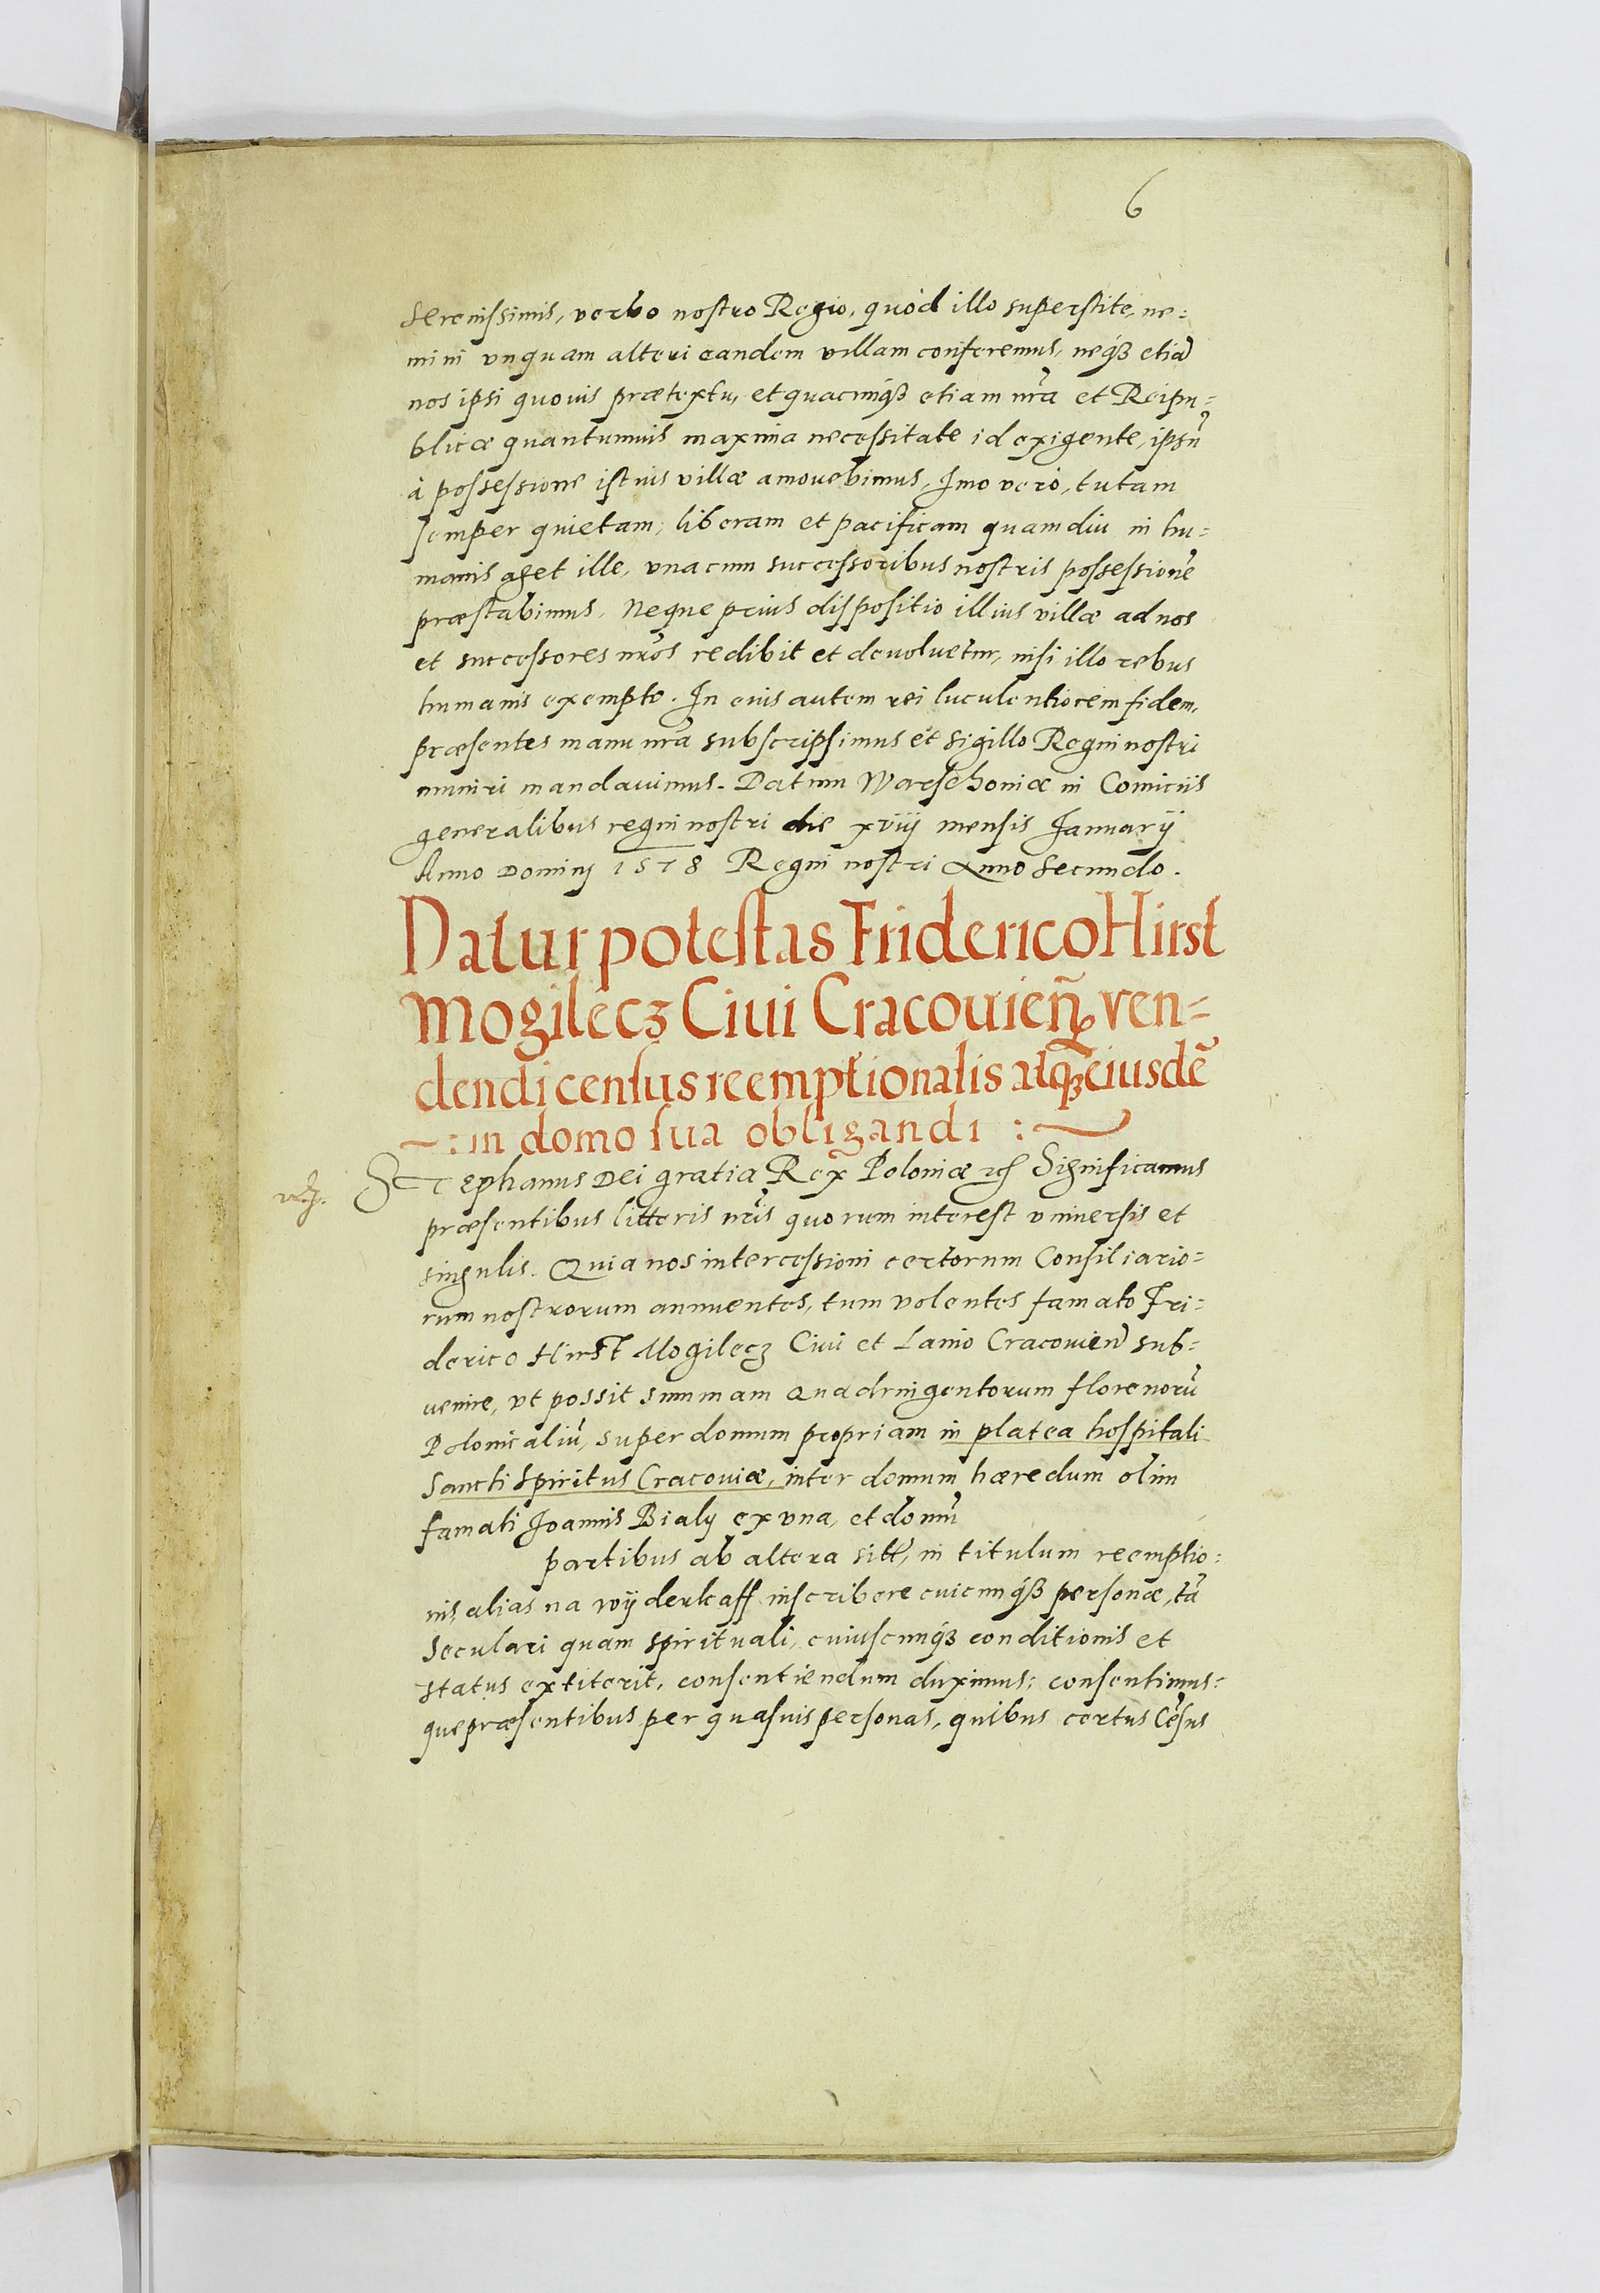 6
Serenissimis, verbo nostro Regio, quòd illo superstite, ne=
mini vnquam alteri eandem villam conferemus, neqꝫ etiã
nos ipsi quouis prætextu, et quacunqꝫ etiam nrã et Reipu=
blicæ quantumuis maxima necessitate id exigente, ipsũ
à possessione istius villæ amouebimus, Imo verò, tutam
semper quietam, liberam et pacificam quamdiu in hu=
manis aget ille, vna cum successoribus nostris possessionẽ
præstabimus, Neque prius dispositio illius villæ ad nos
et successores nr̃os redibit et deuoluetur, nisi illo rebus
humanis exempto. In cuius autem rei luculentiorem fidem,
præsentes manu nrã subscripsimus et sigillo Regni nostri
muniri mandauimus. Datum Warschouiæ in Comiciis
generalibus regni nostri die xviij mensis Januarij
Anno Dominj 1578 Regni nostri Anno Secundo.
Datur potestas Friderico Hirst
Mogilecz Ciui Cracouieñ ven=
dendi census reemptionalis atqꝫ eiusdẽ
: in domo sua obligandi :
Stephanus Dei gratia Rex Poloniæ ꝛc̃ Significamus
præsentibus litteris nr̃is quorum interest vniuersis et
singulis. Quia nos intercessioni certorum Consiliario=
rum nostrorum annuentes, tum volentes famato Fri=
derico Hirst Mogilecz Ciui et Lanio Cracouieñ sub=
uenire, vt possit summam quadringentorum florenorũ
Polonicaliũ, super domum propriam in platea hospitali
Sancti Spiritus Cracouiæ, inter domum hæredum olim
famati Joannis Bialy ex vna, et domũ
partibus ab altera sitt̃, in titulum reemptio=
nis alias na wyderkaff inscribere cuicunqꝫ personæ, tã
seculari quam spirituali, cuiuscunqꝫ conditionis et
status extiterit, consentiendum duximus: consentimus=
que præsentibus per quasuis personas, quibus certus Cẽsus